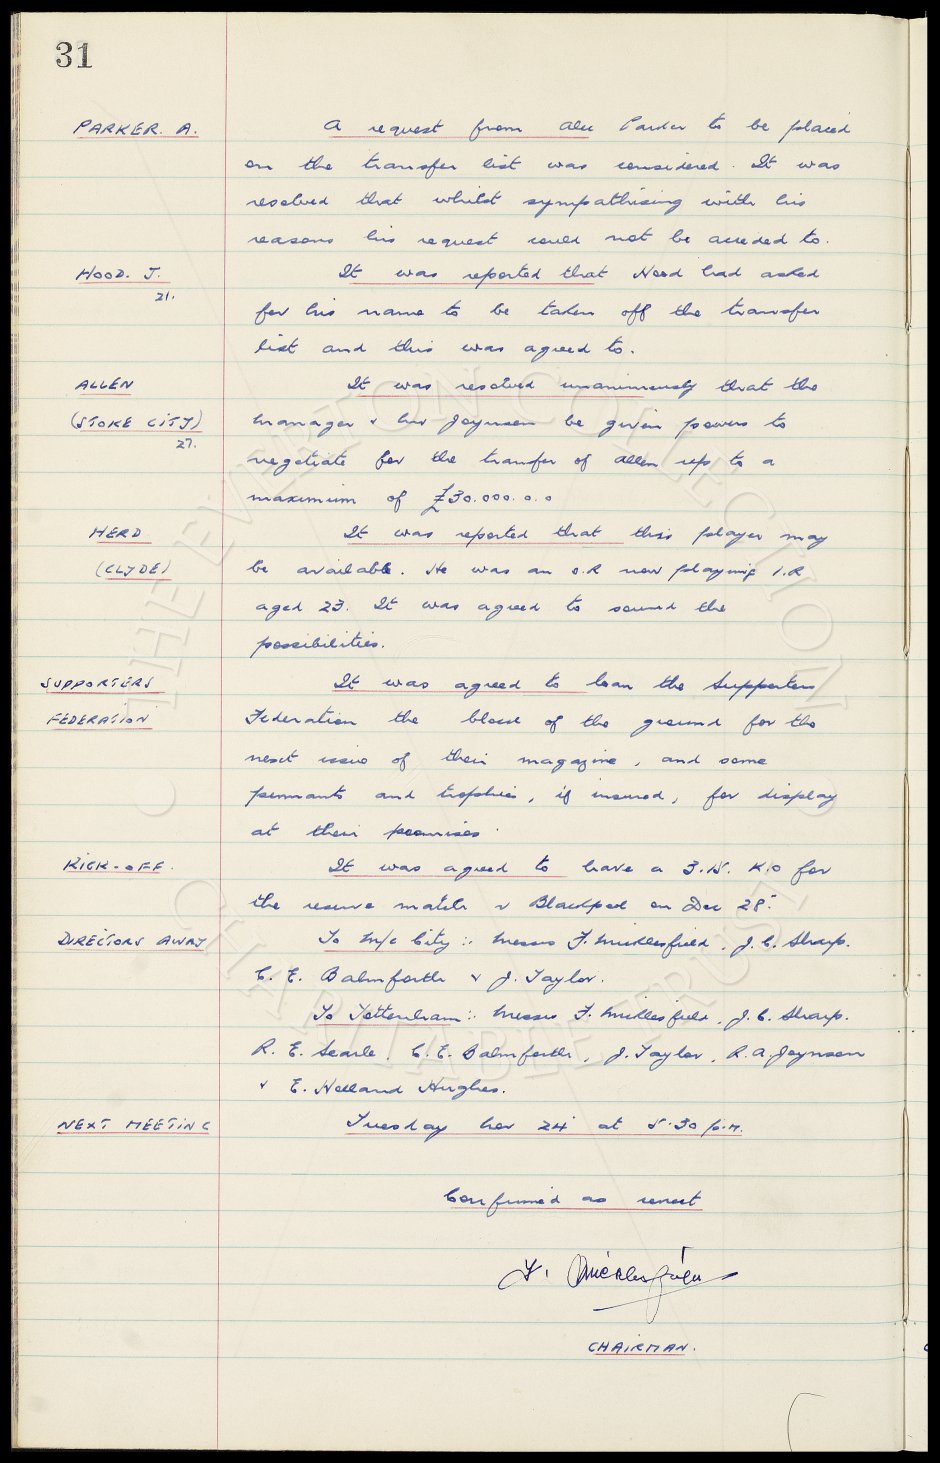 31
PARKER. A. A request from Alec Parker to be placed
on the transfer list was considered. It was
resolved that whilst sympathising with his
reasons his request could not be acceded to.
HOOD. J. It was reported that Hood had asked
21. for his name to be taken off the transfer
list and this was agreed to.
ALLEN It was resolved unanimously that the
(STOKE CITY) manager & Mr Joynson be given powers to
27. negotiate for the transfer of Allen up to a
maximum of £30.000.0.0
HERD It was reported that this player may
(CLYDE) be available. He was an O.R now playing I.R
aged 23. It was agreed to sound the
possibilities.
SUPPORTERS It was agreed to loan the Supporters
FEDERATION Federation the block of the ground for the
next issue of their magazine, and some
pennants and trophies, if insured, for display
at their premises.
KICK-OFF. It was agreed to have a 3.15. K.O for
the reserve match v Blackpool on Dec 28th
DIRECTORS AWAY To M/c City :- Messrs F. Micklesfield, J.C. Sharp.
C. E. Balmforth & J. Taylor.
To Tottenham :- Messrs F. Micklesfield, J.C. Sharp.
R. E. Searle, C.E. Balmforth, J. Taylor, R.A. Joynson
& E. Holland Hughes.
NEXT MEETING Tuesday Nov 24th at 5.30 p.m.
Confirmed as correct
F. Micklesfield
CHAIRMAN.
© THE EVERTON COLLECTION ©
CHARITABLE TRUST